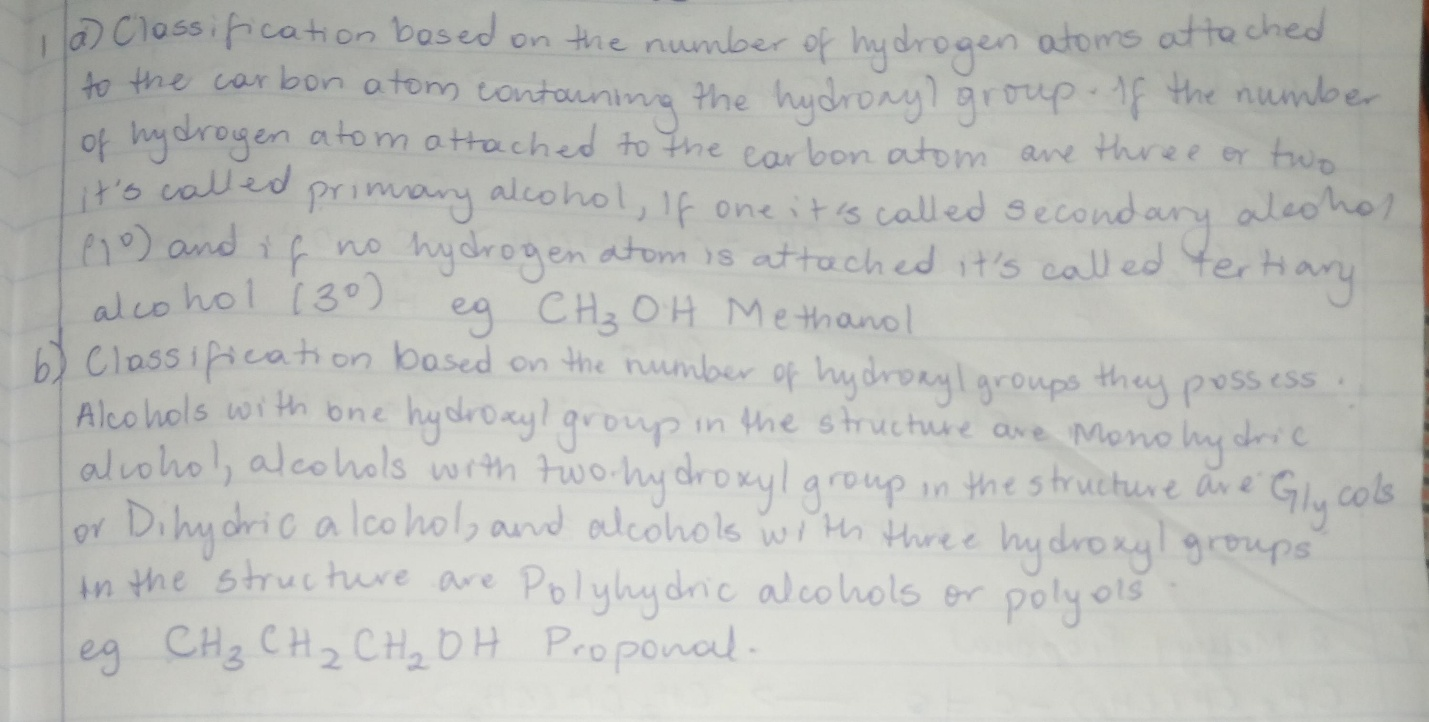 1 a) Classification based on the number of hydrogen atoms attached
to the carbon atom containing the hydroxyl group. If the number
of hydrogen atom attached to the carbon atom are three or two
it's called primary alcohol, If one it's called secondary alcohol
(1°) and if no hydrogen atom is attached it's called tertiary
alcohol (3°) eg CH₃OH Methanol
b) Classification based on the number of hydroxyl groups they possess.
Alcohols with one hydroxyl group in the structure are Monohydric
alcohol, alcohols with two hydroxyl group in the structure are Glycols
or Dihydric alcohol, and alcohols with three hydroxyl groups
in the structure are Polyhydric alcohols or polyols.
eg CH₃CH₂CH₂OH Proponal.